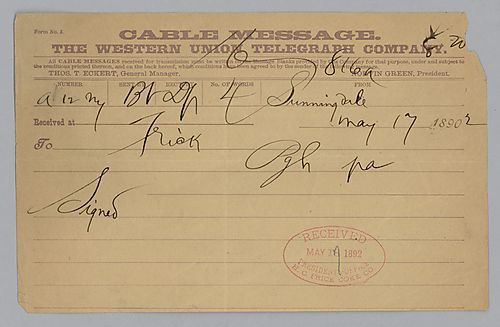 Form No. 1.
CABLE MESSAGE.
THE WESTERN UNION TELEGRAPH COMPANY.
20
ALL CABLE MESSAGES received for transmission must be written on the Message Blanks provided by this Company for that purpose, under and subject to
the conditions printed thereon, and on the back hereof, which conditions have been agreed to by the sender
THOS. T. ECKERT, General Manager. NORVIN GREEN, President.
NUMBER SENT REC'D No. OF WORDS FROM
4 Sunningdale
Received at May 17 1892
To Frick
Pgh pa
Signed
RECEIVED
MAY 1892
PRESIDENT'S OFFICE
H. C. FRICK COKE CO